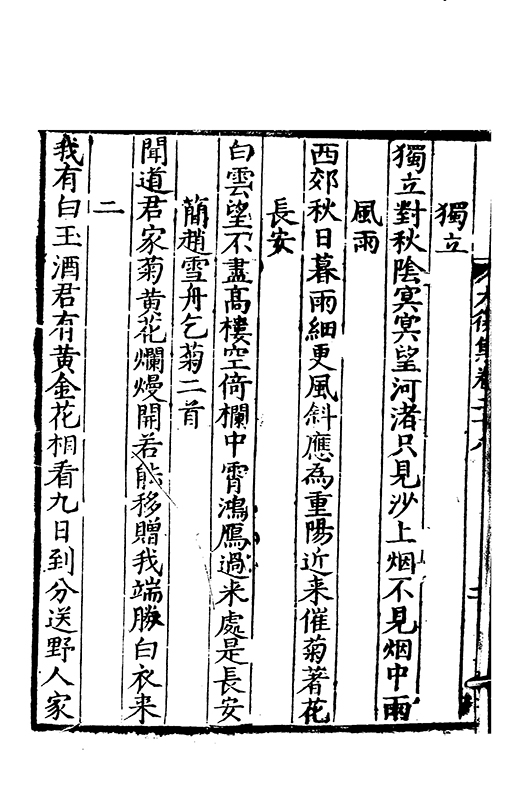 大復集卷二十八
二
獨立
獨立對秋陰冥冥望河渚只見沙上烟不見烟中雨
風雨
西郊秋日暮雨細更風斜應為重陽近来催菊著花
長安
白雲望不盡髙樓空倚欄中霄鴻鴈過来處是長安
簡趙雪舟乞菊二首
聞道君家菊黄花爛熳開若能移贈我端勝白衣来
二
我有白玉酒君有黄金花相看九日到分送野人家